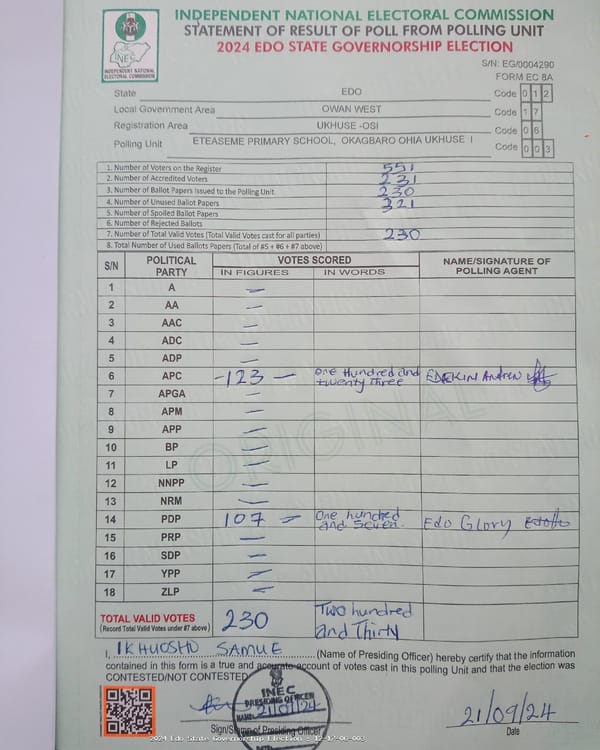 INDEPENDENT NATIONAL ELECTORAL COMMISSION
STATEMENT OF RESULT OF POLL FROM POLLING UNIT
2024 EDO STATE GOVERNORSHIP ELECTION
INEC
INDEPENDENT NATIONAL
ELECTORAL COMMISSION
S/N: EG/0004290
FORM EC 8A
State EDO Code 0 1 2
Local Government Area OWAN WEST Code 1 7
Registration Area UKHUSE -OSI Code 0 6
Polling Unit ETEASEME PRIMARY SCHOOL, OKAGBARO OHIA UKHUSE I Code 0 0 3
1. Number of Voters on the Register 551
2. Number of Accredited Voters 231
3. Number of Ballot Papers Issued to the Polling Unit 230
4. Number of Unused Ballot Papers 321
5. Number of Spoiled Ballot Papers
6. Number of Rejected Ballots
7. Number of Total Valid Votes (Total Valid Votes cast for all parties) 230
8. Total Number of Used Ballots Papers (Total of #5 + #6 + #7 above)
S/N POLITICAL PARTY VOTES SCORED NAME/SIGNATURE OF POLLING AGENT
IN FIGURES IN WORDS
1 A —
2 AA —
3 AAC —
4 ADC —
5 ADP —
6 APC -123 — One Hundred and twenty Three
7 APGA —
8 APM —
9 APP —
10 BP —
11 LP —
12 NNPP —
13 NRM —
14 PDP 107 — One hundred and Seven. Edo Glory
15 PRP —
16 SDP —
17 YPP —
18 ZLP —
ORIGINAL
TOTAL VALID VOTES 230 Two hundred and Thirty
(Record Total Valid Votes under #7 above)
I, IKHUOSHO SAMUE (Name of Presiding Officer) hereby certify that the information
contained in this form is a true and accurate account of votes cast in this polling Unit and that the election was
CONTESTED/NOT CONTESTED.
INEC
PRESIDING OFFICER
21/09/24
DATE:
Sign/Stamp of Presiding Officer
21/09/24
Date
2024 Edo State Governorship Election - 12-17-06-003